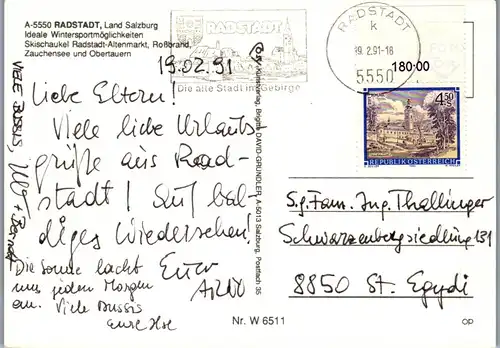 A-5550 RADSTADT, Land Salzburg
Ideale Wintersportmöglichkeiten
Skischaukel Radstadt-Altenmarkt, Roßbrand,
Zauchensee und Obertauern
RADSTADT
Die alte Stadt im Gebirge
RADSTADT
k
19. 2.91-18
5550
180:00
4.50
REPUBLIK ÖSTERREICH
19.02.91
Liebe Eltern!
Viele liebe Urlaubs
grüße aus Rad-
stadt! Auf bal-
diges Wiedersehen!
Euer
Die Sonne lacht
uns jeden Morgen
an. Viele Bussis
Eure Ilse
VIELE BUSSIS,
Kunstverlag, Brigitte DAVID-GRÜNDLER, A-5013 Salzburg, Postfach 35
S.g. Fam. Ing. Thallinger
Schwarzenbergsiedlung 131
8850 St. Egydi
Nr. W 6511